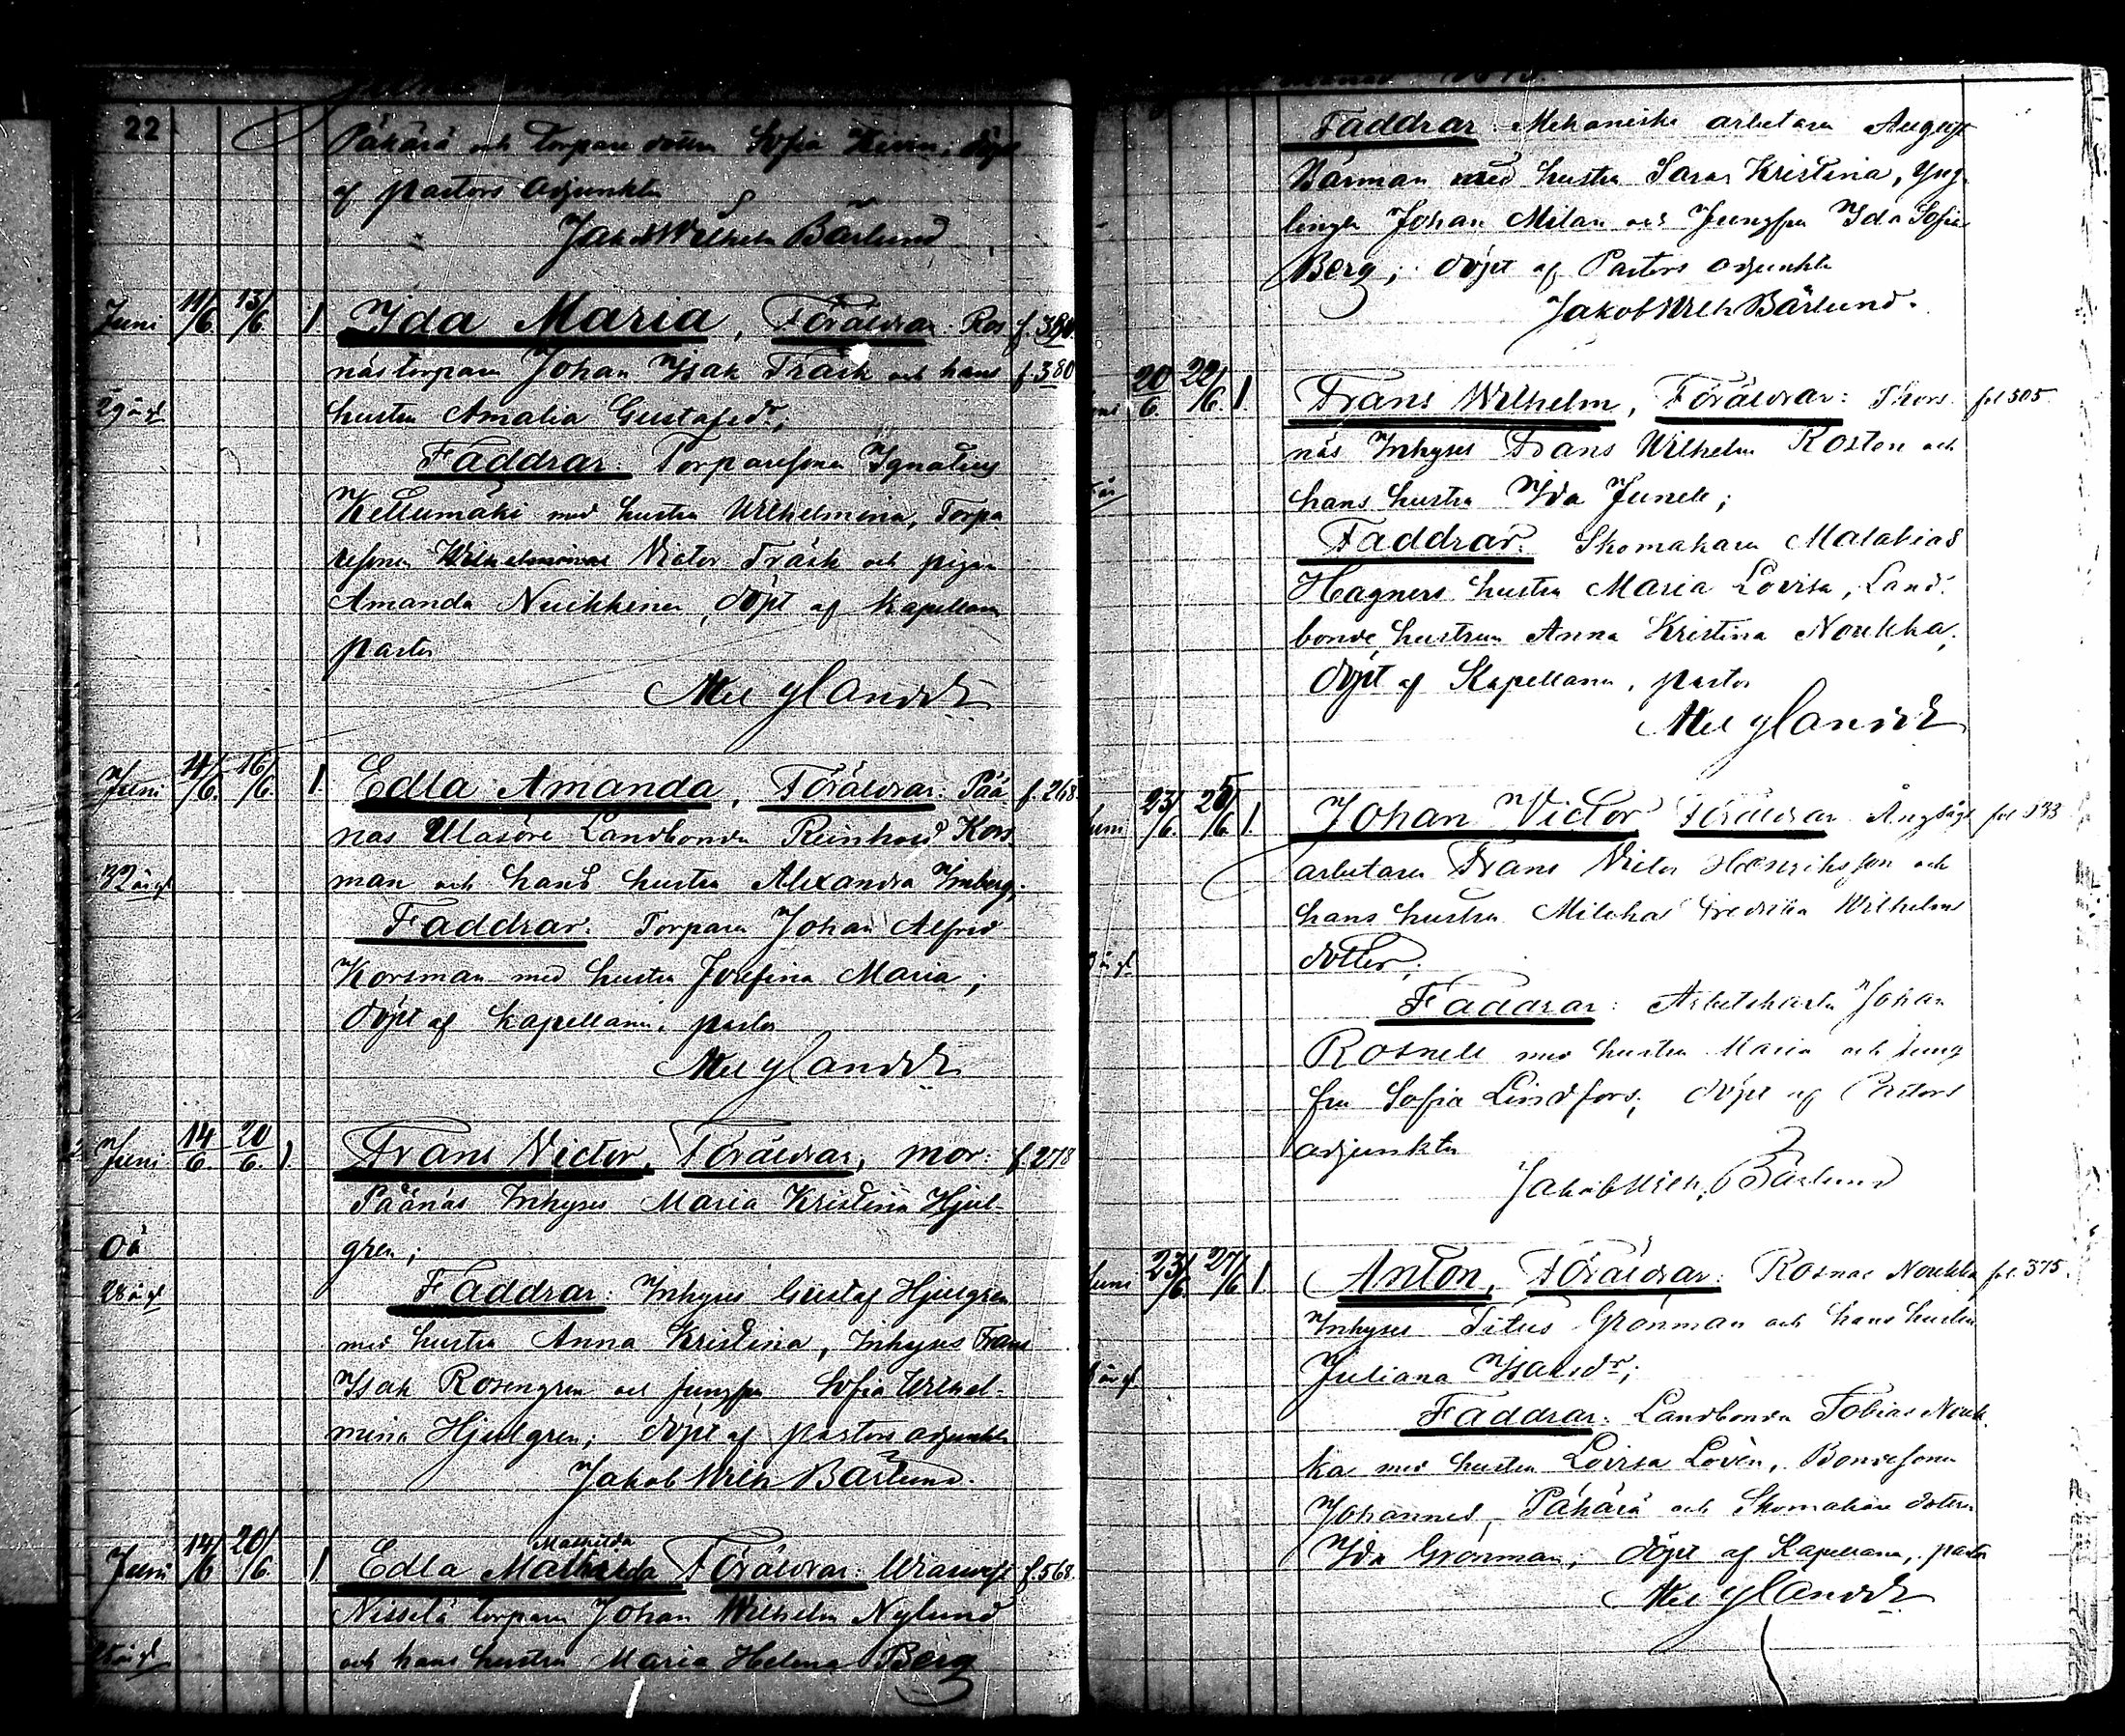 22
Påkärä och torpare dottern Sofia döpt
af pastors adjunkten
Jakob Wilhelm Bärlund
Juni 11/6 13/6 1 Ida Maria, Föräldrar: Ros f. 380
näs torparen Johan Isak Träsk och hans f. 380
29 år gl hustru Amalia Gustafsdr;
Faddrar: Torparesonen Ignatius
Kellumäki med hustru Wilhelmina, Torpa
resonen Wilhelmina Victor Träsk och pigan
Amanda Nuikkinen, döpt af Kapellanen
pastor
Mel Ylander
Juni 14/6. 16/6. 1. Edla Amanda, Föräldrar: Pää- f. 268
näs Ulasöre Landbonden Reinhold Kors-
32 år gl man och hans hustru Alexandra Imberg;
Faddrar: Torparen Johan Alfred
Korsman med hustru Josefina Maria;
döpt af kapellanen, pastor
Mel Ylander
Juni 14/6. 20/6. 1. Frans Victor, Föräldrar, mor: f. 278
Päänäs Inhyses Maria Kristina Hjul-
oä gren;
28 år gl Faddrar: Inhyses Gustaf Hjulgren
med hustru Anna Kristina, Inhyses Frans
Isak Rosengren och jungfru Sofia Wilhel-
mina Hjulgren; döpt af pastors adjunkten
Jakob Wilh Bärlund.
Mathilda
Juni 14/6 20/6. 1 Edla Mathilda Föräldrar: f. 568.
Nisselä torparen Johan Wilhelm Nylund
och hans hustru Maria Helena Berg
Faddrar: Mekaniske arbetaren August
Bärman med hustru Sara Kristina, Yng-
lingen Johan Milan och Jungfru Ida Sofia
Berg; döpt af Pastors adjunkten
Jakob Wilh Bärlund.
20/6. 22/6. 1. Frans Wilhelm, Föräldrar: Thors- fol 305
näs Inhyses Frans Wilhelm Rosten och
hans hustru Ida Junell;
Faddrar: Skomakaren Malakias
Hagners hustru Maria Lovisa, Land-
bonde hustrun Anna Kristina Noukka,
döpt af Kapellanen, pastor
Mel Ylander
Juni 23/6. 26/6. 1. Johan Victor Föräldrar Ångsågs fol 133
arbetaren Frans Victor Henriksson och
hans hustru Milcha Fredrika Wilhelms
dotter;
Faddrar: Arbetskarlen Johan
Rosnell med hustru Maria och Jung
fru Sofia Lindfors; döpt af Pastors
adjunkten
Jakob Wilh. Bärlund
Juni 23/6. 27/6 1 Anton, Föräldrar: Rosnäs Noukka fol. 375.
Inhyses Titus Grönman och hans hustru
Juliana Isaksdr;
Faddrar: Landbonden Tobias Nouk-
ka med hustru Lovisa Lovén, Bondesonen
Johannes Påkärä och Skomakare dottern
Ida Grönman; döpt af Kapellanen, pastor
Mel Ylander